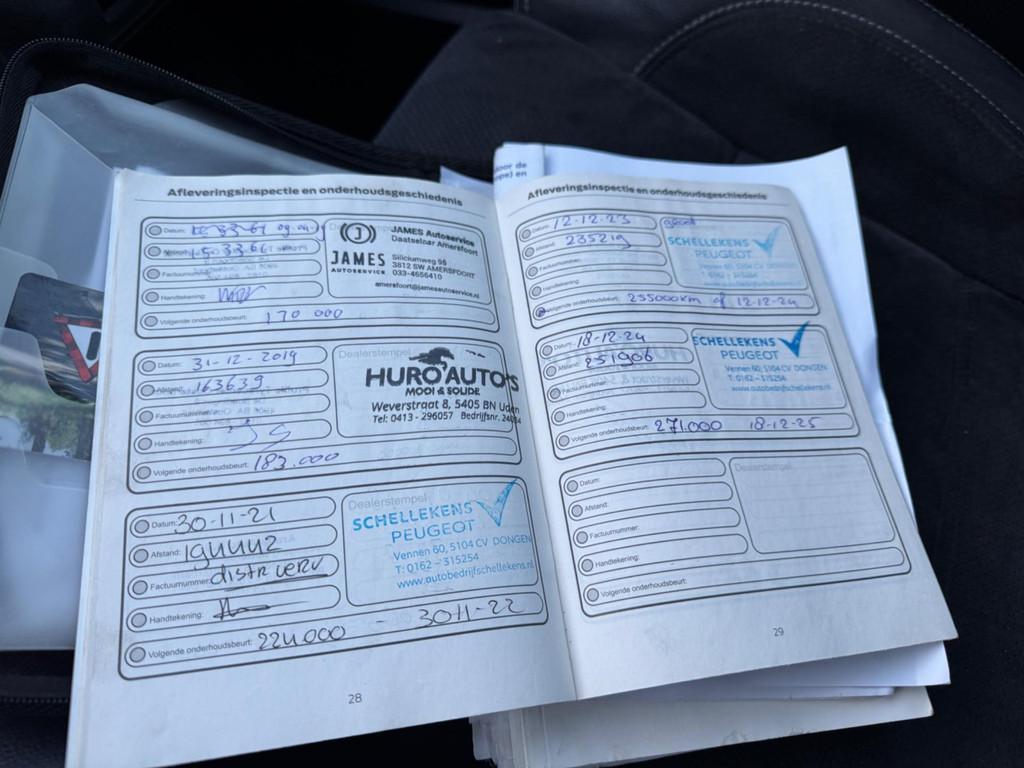 Afleveringsinspectie en onderhoudsgeschiedenis
Datum:
Afstand: 150336
Factuurnummer:
Handtekening:
Volgende onderhoudsbeurt: 170 000
JAMES
AUTOSERVICE
JAMES Autoservice
Daatselaar Amersfoort
Siliciumweg 98
3812 SW AMERSFOORT
033-4656410
amersfoort@jamesautoservice.nl
Datum: 31-12-2019
Afstand: 163639
Factuurnummer:
Handtekening:
Volgende onderhoudsbeurt: 183.000
Dealerstempel
HURO AUTO'S
MOOI & SOLIDE
Weverstraat 8, 5405 BN Uden
Tel: 0413 - 296057 Bedrijfsnr.
Datum: 30-11-21
Afstand: 194442
Factuurnummer: distr verv
Handtekening:
Volgende onderhoudsbeurt: 224.000 - 30-11-22
Dealerstempel
SCHELLEKENS
PEUGEOT
Vennen 60, 5104 CV DONGEN
T: 0162 - 315254
www.autobedrijfschellekens.nl
28
Afleveringsinspectie en onderhoudsgeschiedenis
Datum: 12-12-23
Afstand: 235219
Factuurnummer:
Handtekening:
Volgende onderhoudsbeurt: 255000km of 12-12-24
groot
SCHELLEKENS
PEUGEOT
Vennen 60, 5104 CV DONGEN
T: 0162 - 315254
www.autobedrijfschellekens.nl
Datum: 18-12-24
Afstand: 251906
Factuurnummer:
Handtekening:
Volgende onderhoudsbeurt: 271.000 18-12-25
SCHELLEKENS
PEUGEOT
Vennen 60, 5104 CV DONGEN
T: 0162 - 315254
www.autobedrijfschellekens.nl
Datum:
Afstand:
Factuurnummer:
Handtekening:
Volgende onderhoudsbeurt:
Dealerstempel
29